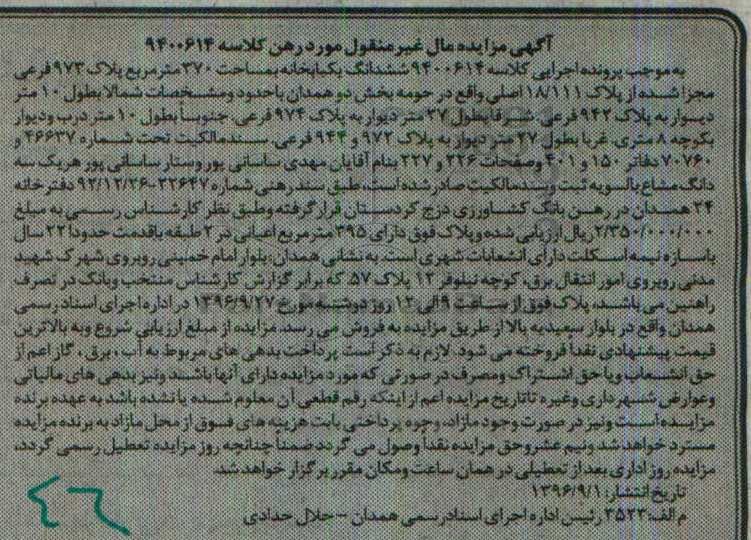 آگهی مزایده مال غیر منقول مورد رهن کلاسه ۹۴۰۰۶۱۴
به موجب پرونده اجرایی کلاسه ۹۴۰۰۶۱۴ ششدانگ یکبابخانه بمساحت ۲۷۰ متر مربع پلاک ۹۷۳ فرعی
مجزا شده از پلاک ۱۸/۱۱۱ اصلی واقع در حومه بخش دو همدان باحدود ومشخصات شمالا بطول ۱۰ متر
دیوار به پلاک ۹۴۲ فرعی. شرقا بطول ۲۷ متر دیوار به پلاک ۹۷۴ فرعی. جنوبا بطول ۱۰ متر درب ودیوار
بکوچه ۸ متری. غربا بطول ۲۷ متر دیوار به پلاک ۹۷۲ و ۹۴۴ فرعی. سندمالکیت تحت شماره ۴۶۶۳۷ و
۷۰۷۶۰ دفاتر ۱۵۰ و ۴۰۱ وصفحات ۲۲۶ و ۲۲۷ بنام آقایان مهدی ساسانی پور وستار ساسانی پور هریک سه
دانگ مشاع بالسویه ثبت وسندمالکیت صادر شده است، طبق سند رهنی شماره ۲۲۶۴۷-۹۲/۱۲/۲۶ دفترخانه
۲۴ همدان در رهن بانک کشاورزی درج کردستان قرار گرفته وطبق نظر کارشناس رسمی به مبلغ
۲/۳۵۰/۰۰۰/۰۰۰ ریال ارزیابی شده وپلاک فوق دارای ۳۹۵ متر مربع اعیانی در ۲ طبقه باقدمت حدودا ۲۲ سال
باسازه نیمه اسکلت دارای انشعابات شهری است. به نشانی همدان: بلوار امام خمینی روبروی شهرک شهید
مدنی روبروی امور انتقال برق، کوچه نیلوفر ۱۲ پلاک ۵۷ که برابر گزارش کارشناس منتخب وبانک در تصرف
راهنین می باشد، پلاک فوق از ساعت ۹ الی ۱۲ روز دوشنبه مورخ ۱۳۹۶/۹/۲۷ در اداره اجرای اسناد رسمی
همدان واقع در بلوار سعیدیه بالا از طریق مزایده به فروش می رسد. مزایده از مبلغ ارزیابی شروع وبه بالاترین
قیمت پیشنهادی نقدا فروخته می شود. لازم به ذکر است پرداخت بدهی های مربوط به آب، برق، گاز اعم از
حق انشعاب ویا حق اشتراک ومصرف در صورتی که مورد مزایده دارای آنها باشد ونیز بدهی های مالیاتی
وعوارض شهرداری وغیره تاتاریخ مزایده اعم از اینکه رقم قطعی آن معلوم شده یا نشده باشد به عهده برنده
مزایده است ونیز در صورت وجود مازاد، وجوه پرداختی بابت هزینه های فوق از محل مازاد به برنده مزایده
مسترد خواهد شد ونیم عشر وحق مزایده نقدا وصول می گردد ضمنا چنانچه روز مزایده تعطیل رسمی گردد،
مزایده روز اداری بعد از تعطیلی در همان ساعت ومکان مقرر برگزار خواهد شد.
تاریخ انتشار: ۱۳۹۶/۹/۱
م الف: ۳۵۲۳ رئیس اداره اجرای اسناد رسمی همدان - جلال حدادی